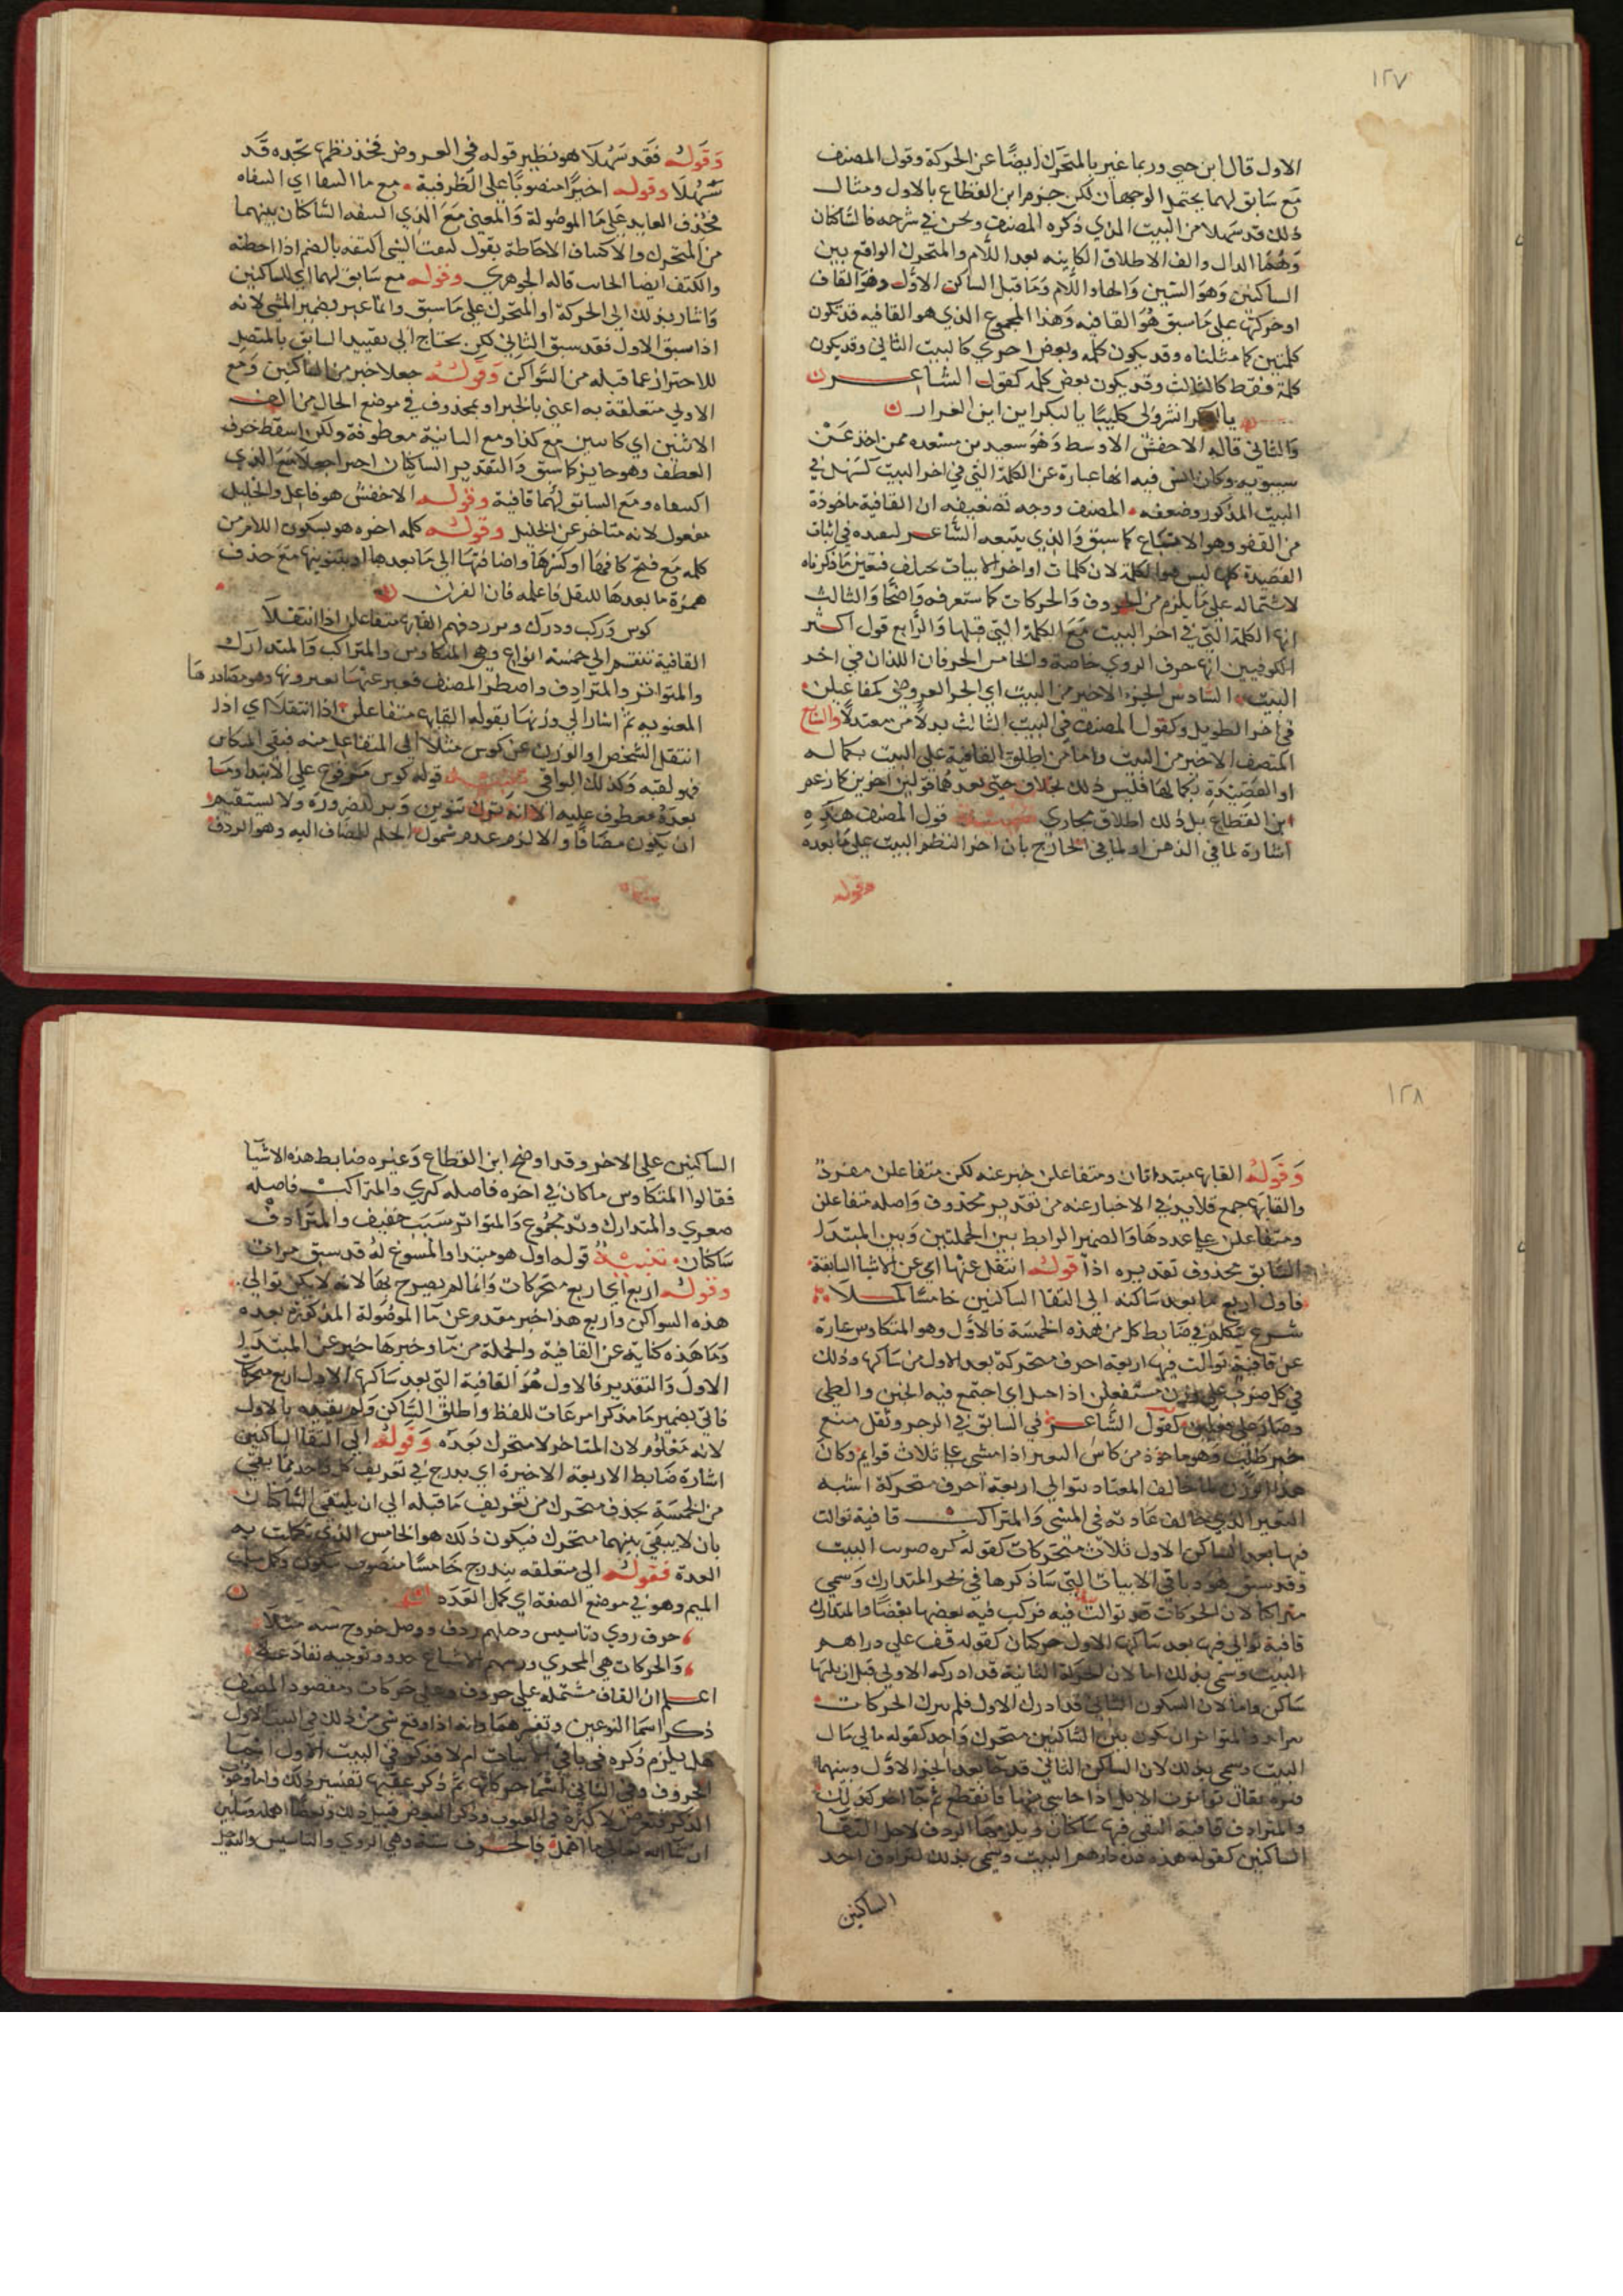 ١٢٧
الاول قال ابن جني وربما عبر بالمتحرك ايضًا عن الحركة وقول المصنف
مع سابق لهما يحتمل الوجهان لكن جزم ابن القطاع بالاول ومثال
ذلك قد سهلا من البيت الذي ذكره المصنف ونحن في شرحه فالساكنان
وهما الدال والف الاطلاق الكاينه بعد اللام والمتحرك الواقع بين
الساكنين وهو السين والهاء واللام وما قبل الساكن الاول وهو القاف
او حركتها على ما سبق هو القافيه وهذا المجموع الذي هو القافيه قد تكون
كلمتين كما مثلناه وقد يكون كلمه وبعض اخري كالبيت الثاني وقد يكون
كلمة فقط كالثالث وقد يكون بعض كلمه كقول الشاعر
يا لبكر انشروا لي كليبًا يا لبكر اين اين الفرار
والثاني قاله الاخفش الاوسط وهو سعيد بن مسعده ممن اخذ عن
سيبويه وكان فيه انها عبارة عن الكلمة التي في اخر البيت كسهل في
البيت المذكور وضعفه المصنف ووجه تضعيفه ان القافية ماخوذة
من القفو وهو الاتباع كما سبق والذي يتبعه الشاعر ليعيده في ابيات
القصيدة كلها ليس هو الكلمة لان كلمات اواخر الابيات تختلف فتعين ما ذكرناه
لاشتماله على ما يلزم من الحروف والحركات كما ستعرفه واضحًا والثالث
انها الكلمة التي في اخر البيت مع الكلمة التي قبلها والرابع قول اكثر
الكوفيين انها حرف الروي خاصة والخامس الحرفان اللذان في اخر
البيت السادس الجزء الاخير من البيت اي الجزء العروضي كمفاعيلن
في اخر الطويل وكقول المصنف في البيت الثالث بدلًا من معتدلًا والسابع
النصف الاخير من البيت واما من اطلق القافية على البيت بكماله
او القصيدة بكمالها فليس ذلك بخلاف حتى يعدهما قولين اخرين كما زعم
ابن القطاع بل ذلك اطلاق مجازي قول المصنف هذه
اشارة لما في الذهن او لما في الخارج بان اخر النظم البيت على ما بعده
وقوله
وقوله فقد سهلا هو نظير قوله في العروض فخذ نظمها تجده قد
سهلا وقوله اخيرًا منصوبًا على الظرفية مع ما السفا اي السفاه
فحذف العايد على ما الموصولة والمعنى مع الذي السفه الساكنان بينهما
من المتحرك والاكتناف الاحاطة يقول كنفت الشي اكنفه بالضم اذا احطته
والكنف ايضا الجانب قاله الجوهري وقوله مع سابق لهما اي للساكنين
واشار بذلك الى الحركة او المتحرك على ما سبق وانما عبر بضمير المثني لانه
اذا سبق الاول فقد سبق الثاني لكن يحتاج الى تقييد السابق بالمتصل
للاحتراز عما قبله من السواكن وقوله جعلا خبر من الساكنين ومع
الاولي متعلقة به اعني بالخبر او بمحذوف في موضع الحال من الف
الاثنين اي كاينين مع كذا ومع الثانية معطوفة ولكن اسقط حرف
العطف وهو جايز كما سبق والتقدير الساكنان اخيرا جعلا مع الذي
اكنفاه ومع السابق لهما قافية وقوله الاخفش هو فاعل والخليل
مفعول لانه متاخر عن الخليل وقوله كلمه اخره هو بسكون اللام من
كلمه مع فتح كافها او كسرها واضافتها الى ما بعدها او بتنوينها مع حذف
همزة ما بعدها للنقل فاعلمه فان
كوس وركب ودرك ومرد فهم القابها متفاعلن اذا انتقلا
القافية تنقسم الى خمسة انواع وهي المتكاوس والمتراكب والمتدارك
والمتواتر والمترادف واضطر المصنف فعبر عنها وهو مصادرها
المعنويه ثم اشار الى وزنها بقوله القابها متفاعلن اذا انتقلا اي اذا
انتقل الشخص او الوزن عن كوس مثلا الى المتفاعل منه فبقي المتكاوس
فهو لقبه وكذلك البواقي قوله كوس مرفوع على الابتدا وما
بعده معطوف عليه الا انه ترك تنوين وتر للضرورة ولا يستقيم
ان يكون مضافًا والا لزم عدم شمول الحكم للمضاف اليه وهو الردف
١٢٨
وقوله القابها مبتدا ثان ومتفاعلن خبر عنه لكن متفاعلن مفرد
والقابها جمع فلا بد في الاخبار عنه من تقدير محذوف واصله متفاعلن
ومتفاعلن على عددها والضمير الرابط بين الجملتين وبين المبتدا
السابق محذوف تقديره اذا قوله انتقل عنها اي عن الاشيا السابقة
فاول اربع ما بعد ساكنه الى التقا الساكنين خامسًا كملا
شرع يتكلم في ضابط كل من هذه الخمسة فالاول وهو المتكاوس عبارة
عن قافية توالت فيها اربعة احرف متحركة بعد الاول من ساكنها وذلك
في كل ضرب على وزن مستفعلن اذا خبل اي اجتمع فيه الخبن والطي
وصار على فعلتن كقول الشاعر في السابق في الرجز وثقل منع
خير طلب وهو ماخوذ من كاس البعير اذا مشى على ثلاث قوايم وكان
هذا الوزن لما خالف المعتاد بتوالي اربعة احرف متحركة اشبه
البعير الذي خالف عادته في المشي والمتراكب قافية توالت
فيها بعد الساكن الاول ثلاث متحركات كقوله كره ضربت البيت
وقد سبق هو وباقي الابيات التي ساذكرها في نحو المتدارك وسمي
متراكبا لان الحركات قد توالت فيه فركب فيه بعضها بعضًا والمتدارك
قافية توالي فيها بعد ساكنها الاول حركتان كقوله قف على دراهم
البيت وسمي بذلك اما لان الحركة الثانية قد ادركه الاولي قبل ان يليها
ساكن واما لان السكون الثاني قد ادرك الاول فلم يترك الحركات
والمتواتر ان يكون بين الساكنين متحرك واحد كقوله مالي مال
البيت وسمي بذلك لان الساكن الثاني قد جا بعد الجزء الاول وبينهما
فترة يقال تواترت الابل اذا جا شي منها فانقطع ثم جا اخر كذلك
والمترادف قافية التقى فيها ساكنان ويلزمها الردف لاجل التقا
الساكنين كقوله هذه دارهم البيت وسمي بذلك لترادف احد
الساكنين
الساكنين على الاخر وقد اوضح ابن القطاع وغيره ضابط هذه الاشيا
فقالوا المتكاوس ما كان في اخره فاصله كبري والمتراكب فاصله
صغري والمتدارك وتد مجموع والمتواتر سبب خفيف والمترادف
ساكنان تنبيه قوله اول هو مبتدا والمسوغ له قد سبق مرات
وقوله اربع اي اربع متحركات وانما لم يصرح بها لانه لا يمكن توالي
هذه السواكن واربع هذا خبر مقدم عن ما الموصولة المذكورة بعده
وما هذه كناية عن القافية والجملة من ما وخبرها خبر عن المبتدا
الاول والتقدير فالاول هو القافية التي بعد ساكنها الاول اربع متحركات
فاتي بضمير ما مذكرا مراعات للفظ واطلق الساكن ولم يقيده بالاول
لانه معلوم لان المتاخر لا متحرك بعده وقوله الى التقا الساكنين
اشارة ضابط الاربعة الاخيرة اي يدرج في تعريف كل واحد مما بقي
من الخمسة بحذف متحرك من تعريف ما قبله الى ان يلتقي الساكنان
بان لا يبقى بينهما متحرك فيكون ذلك هو الخامس الذي تكملت به
العدة فقوله الى متعلقه بيدرج خامسًا منصوب وكمل مثلث
الميم وهو في موضع الصفة اي كمل العدة
حرف روي وتاسيس وردف ووصل خروج سته مثلا
والحركات هي المجري ورسهم الاشباع حذو وتوجيه نفاذ
اعلم ان القاف مشتمله على حروف وعلى حركات ومقصود المصنف
ذكر اسما النوعين وتفسيرهما وانه اذا وقع شي من ذلك في البيت الاول
هل يلزم ذكره في باقي الابيات ام لا فذكر في البيت الاول اسما
الحروف وفي الثاني اسما حركاتها ثم ذكر عقبها تفسير ذلك واما وجوب
ان شا الله تعالى فالحروف ستة وهي الروي والتاسيس والدخيل